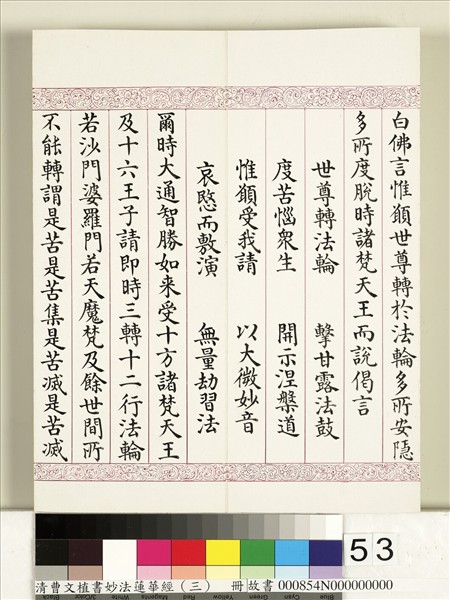 白佛言惟願世尊轉於法輪多所安隱
多所度脫時諸梵天王而說偈言
世尊轉法輪 擊甘露法鼓
度苦惱衆生 開示涅槃道
惟願受我請 以大微妙音
哀愍而敷演 無量劫習法
爾時大通智勝如来受十方諸梵天王
及十六王子請即時三轉十二行法輪
若沙門婆羅門若天魔梵及餘世間所
不能轉謂是苦是苦集是苦滅是苦滅
53
清曹文植書妙法蓮華經(三) 冊 故書 000854N000000000
Black 3/Color White Magenta Red Yellow Green Cyan Blue